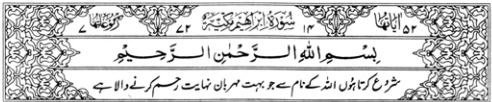 اٰیاتہا ۵۲ ۱۴ سُوْرَۃُ اِبْرٰهِیْمَ مَكِّیَّةٌ ۷۲ رکوعاتہا ۷
بِسْمِ اللّٰهِ الرَّحْمٰنِ الرَّحِیْمِ
شروع کرتا ہوں اللہ کے نام سے جو بہت مہربان نہایت رحم کرنے والا ہے